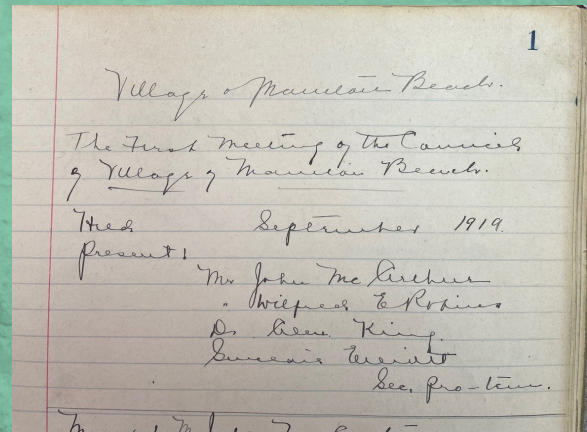 1
Village of Manitou Beach.
The First Meeting of the Council
of Village of Manitou Beach.
Held September 1919.
Present:
Mr John McArthur
" Wilfred E Robins
Dr King
Sec. pro-tem.